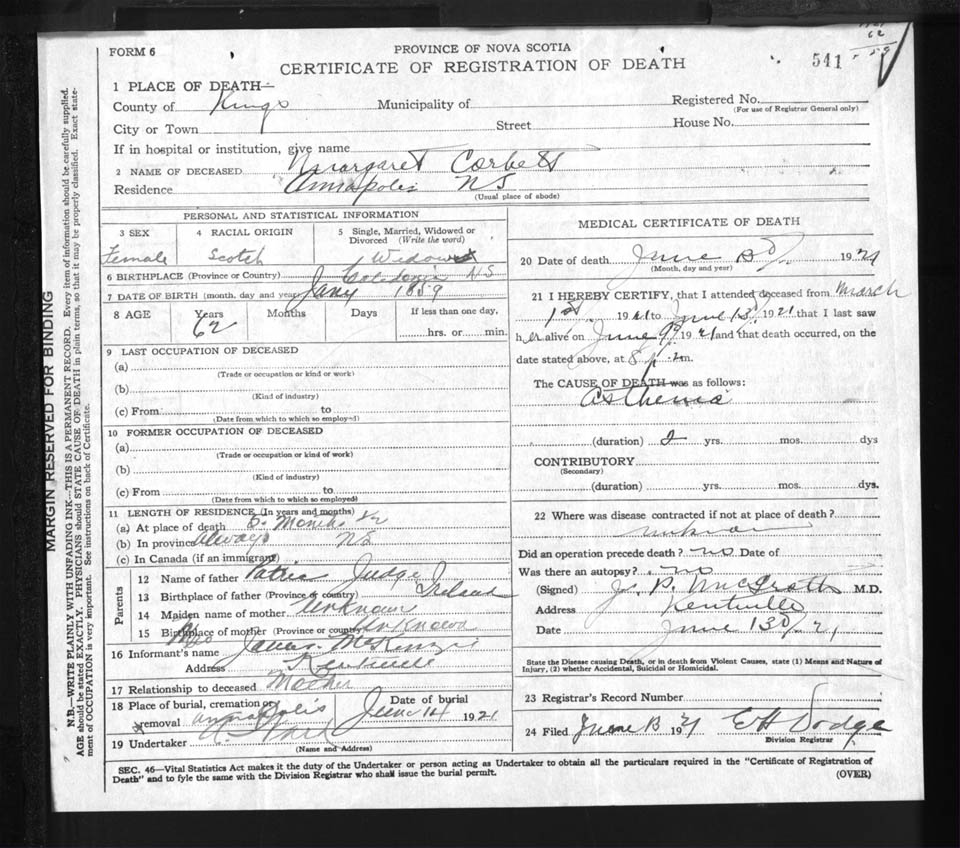 FORM 6
PROVINCE OF NOVA SCOTIA
CERTIFICATE OF REGISTRATION OF DEATH
62
59
541
1 PLACE OF DEATH—
County of Kings Municipality of Registered No.
(For use of Registrar General only)
City or Town Street House No.
If in hospital or institution, give name
2 NAME OF DECEASED Margaret Corbett
Residence Annapolis NS
(Usual place of abode)
PERSONAL AND STATISTICAL INFORMATION
3 SEX 4 RACIAL ORIGIN 5 Single, Married, Widowed or Divorced (Write the word)
Female Scotch Widowed
6 BIRTHPLACE (Province or Country) Caledonia NS
7 DATE OF BIRTH (month, day and year) Jany 1859
8 AGE Years Months Days If less than one day,
62 hrs. or min.
9 LAST OCCUPATION OF DECEASED
(a)
(Trade or occupation or kind or work)
(b)
(Kind of industry)
(c) From to
(Date from which to which so employed)
10 FORMER OCCUPATION OF DECEASED
(a)
(Trade or occupation or kind of work)
(b)
(Kind of industry)
(c) From to
(Date from which to which so employed)
11 LENGTH OF RESIDENCE (In years and months)
(a) At place of death 5 Months 1/2
(b) In province always NS
(c) In Canada (if an immigrant)
Parents
12 Name of father Judge
13 Birthplace of father (Province or country) Ireland
14 Maiden name of mother Unknown
15 Birthplace of mother (Province or country) Unknown
16 Informant's name Mrs James McKenzie
Address Kentville
17 Relationship to deceased Mother
18 Place of burial, cremation or removal Annapolis Date of burial June 14 1921
19 Undertaker
(Name and Address)
MEDICAL CERTIFICATE OF DEATH
20 Date of death June 13th 1921
(Month, day and year)
21 I HEREBY CERTIFY, that I attended deceased from March
1st 1921 to June 13th 1921 that I last saw
her alive on June 9th 1921 and that death occurred, on the
date stated above, at 8 p.m.
The CAUSE OF DEATH was as follows:
Asthenia
(duration) 2 yrs. mos. dys
CONTRIBUTORY
(Secondary)
(duration) yrs. mos. dys.
22 Where was disease contracted if not at place of death?
unknown
Did an operation precede death? no Date of
Was there an autopsy? no
(Signed) J. P. McGrath M.D.
Address Kentville
Date June 13th 21
State the Disease causing Death, or in death from Violent Causes, state (1) Means and Nature of
Injury, (2) whether Accidental, Suicidal or Homicidal.
23 Registrar's Record Number
24 Filed June 13 1921 E H Dodge
Division Registrar
SEC. 46—Vital Statistics Act makes it the duty of the Undertaker or person acting as Undertaker to obtain all the particulars required in the "Certificate of Registration of
Death" and to fyle the same with the Division Registrar who shall issue the burial permit.
(OVER)
MARGIN RESERVED FOR BINDING
N.B.—WRITE PLAINLY WITH UNFADING INK—THIS IS A PERMANENT RECORD. Every item of information should be carefully supplied.
AGE should be stated EXACTLY. PHYSICIANS should STATE CAUSE OF DEATH in plain terms, so that it may be properly classified. Exact state-
ment of OCCUPATION is very important. See instructions on back of Certificate.